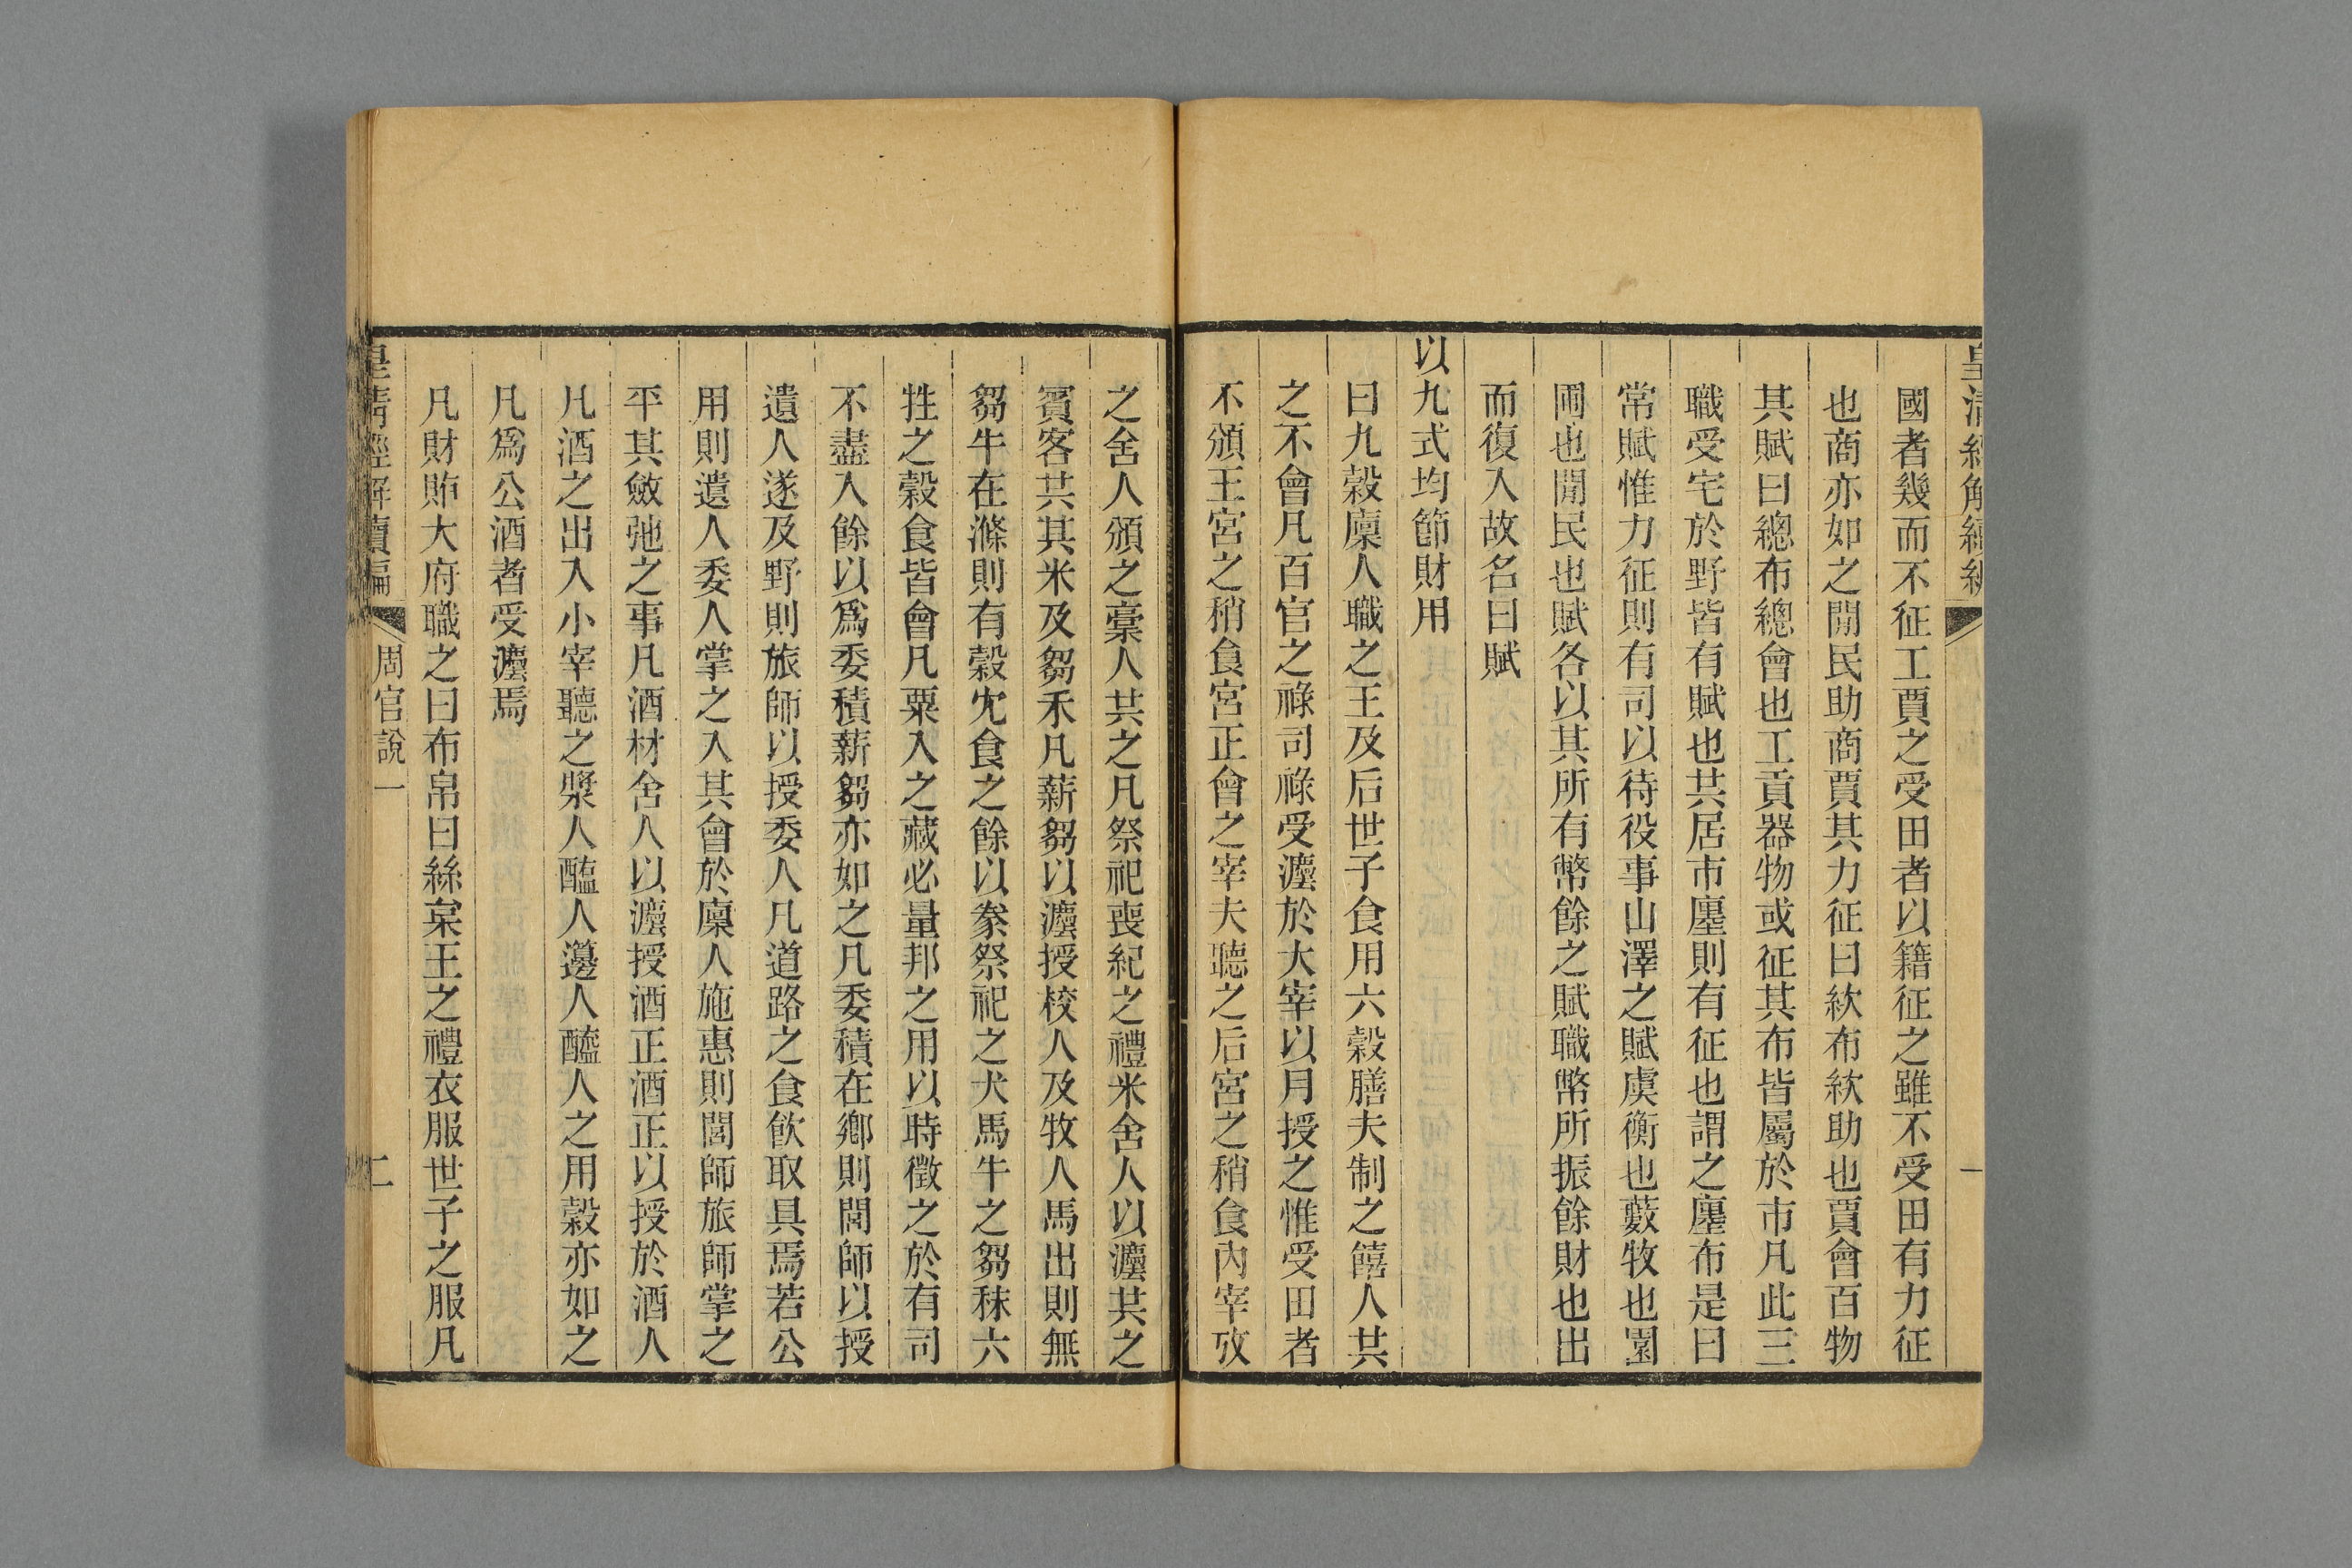 皇清經解續編
一
國者幾而不征工賈之受田者以籍征之雖不受田有力征
也商亦如之閒民助商賈其力征曰紁布紁助也賈會百物
其賦曰總布總會也工貢器物或征其布皆屬於市凡此三
職受宅於野皆有賦也其居市廛則有征也謂之廛布是曰
常賦惟力征則有司以待役事山澤之賦虞衡也藪牧也園
圃也閒民也賦各以其所有幣餘之賦職幣所振餘財也出
而復入故名曰賦
以九式均節財用
曰九穀廩人職之王及后世子食用六穀膳夫制之饎人共
之不會凡百官之祿司祿受灋於大宰以月授之惟受田者
不頒王宮之稍食宮正會之宰夫聽之后宮之稍食內宰攷
之舍人頒之槀人共之凡祭祀喪紀之禮米舍人以灋共之
賓客共其米及芻禾凡薪芻以灋授校人及牧人馬出則無
芻牛在滌則有穀冘食之餘以豢祭祀之犬馬牛之芻秣六
牲之穀食皆會凡粟入之藏必量邦之用以時徵之於有司
不盡入餘以爲委積薪芻亦如之凡委積在鄉則閭師以授
遺人遂及野則旅師以授委人凡道路之食飲取具焉若公
用則遺人委人掌之入其會於廩人施惠則閭師旅師掌之
平其斂弛之事凡酒材舍人以灋授酒正酒正以授於酒人
凡酒之出入小宰聽之漿人醢人籩人醯人之用穀亦如之
凡爲公酒者受灋焉
凡財賄大府職之曰布帛曰絲枲王之禮衣服世子之服凡
皇清經解續編
周官說一
二